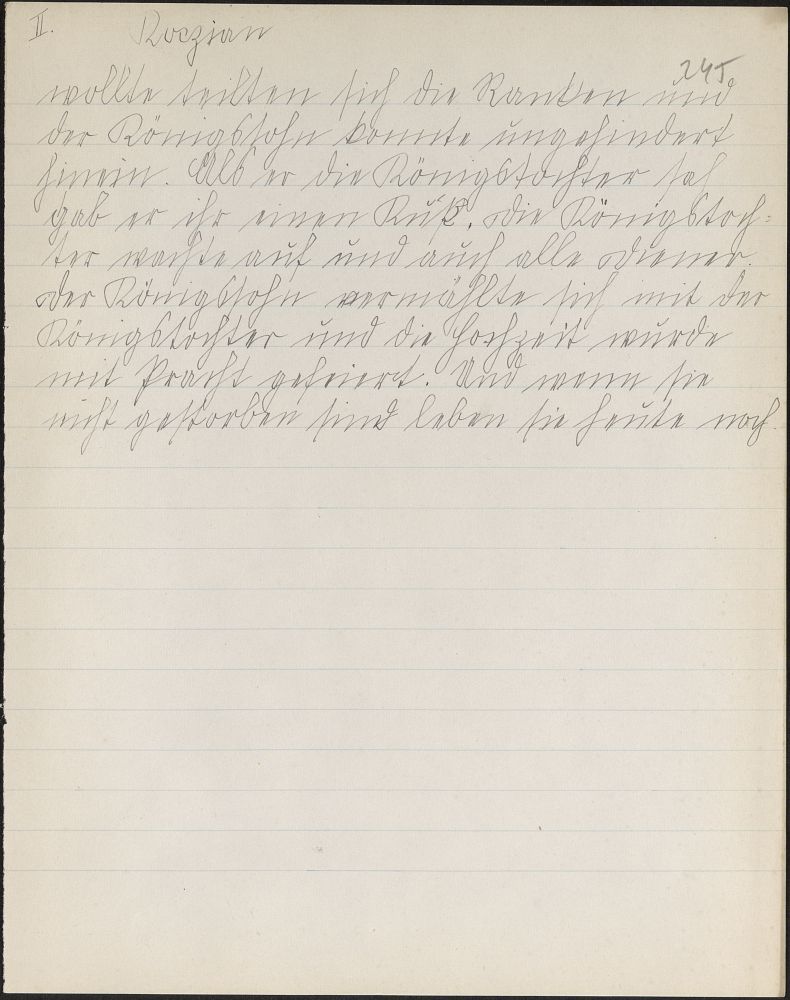 II. Roczian
245
wollte teilten sich die Ranken und
der Königssohn konnte ungehindert
hinein. Als er die Königstochter sah
gab er ihr einen Kuß. Die Königstoch-
ter wachte auf und auch alle Diener.
Der Königssohn vermählte sich mit der
Königstochter und die Hochzeit wurde
mit Pracht gefeiert. Und wenn sie
nicht gestorben sind leben sie heute noch.